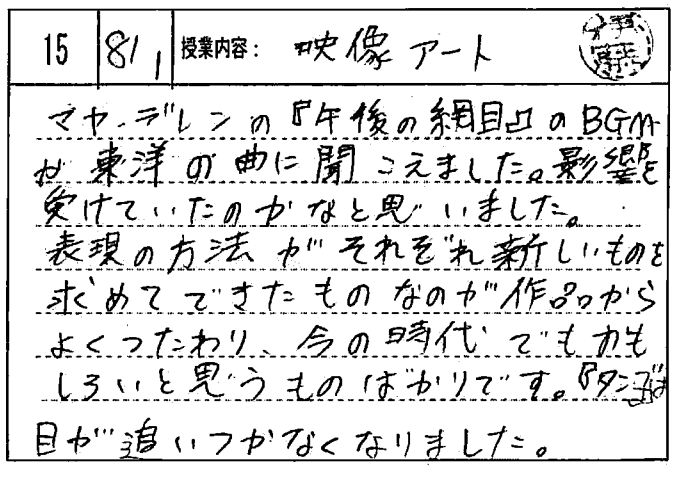 15 8/1 授業内容: 映像アート
マヤ・デレンの『午後の網目』のBGM
が東洋の曲に聞こえました。影響を
受けていたのかなと思いました。
表現の方法がそれぞれ新しいものを
求めてできたものなのが作品から
よくつたわり、今の時代でもおも
しろいと思うものばかりです。『タンゴ』は
目が追いつかなくなりました。